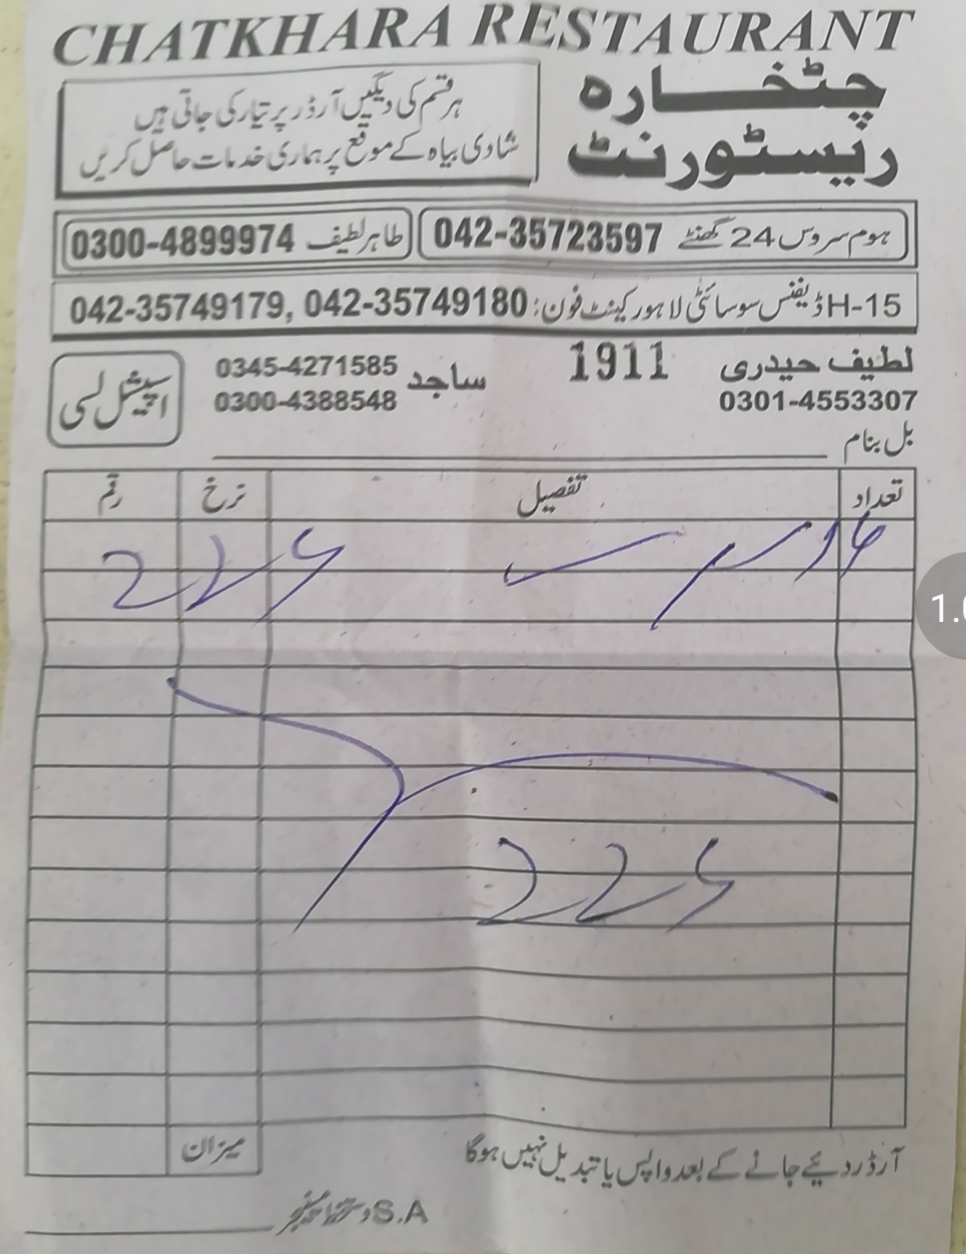 CHATKHARA RESTAURANT
چٹخارہ
ریسٹورنٹ
ہر قسم کی دیگیں آرڈر پر تیار کی جاتی ہیں
شادی بیاہ کے موقع پر ہماری خدمات حاصل کریں
ہوم سروس 24 گھنٹے 042-35723597
طاہر لطیف 0300-4899974
H-15 ڈیفنس سوسائٹی لاہور کینٹ فون: 042-35749179, 042-35749180
لطیف حیدری
0301-4553307
1911
ساجد 0345-4271585
0300-4388548
اسپیشل لسی
بل بنام
تعداد تفصیل نرخ رقم
225
225
میزان
آرڈر دئیے جانے کے بعد واپس یا تبدیل نہیں ہوگا
S.A دستخط منیجر
1.0